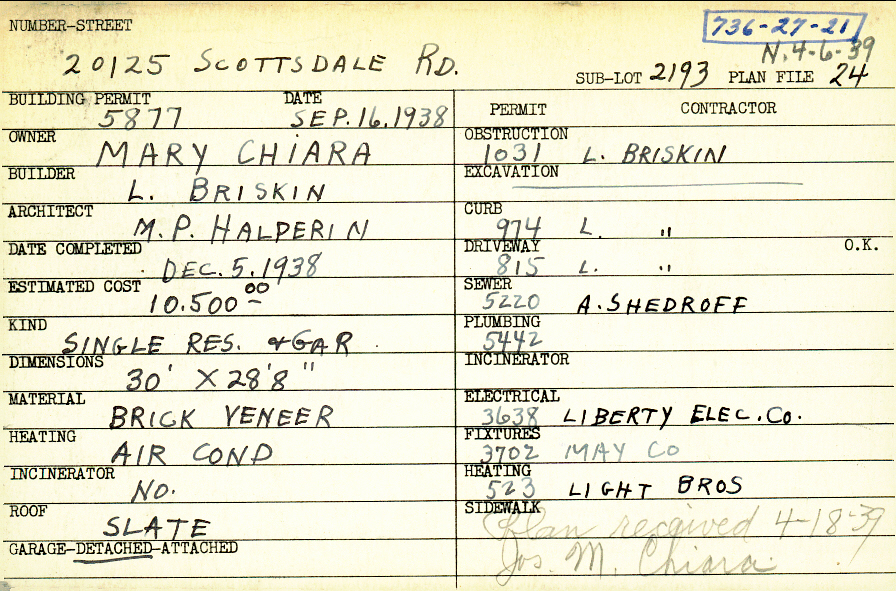 NUMBER-STREET
736-27-21
N. 4-6-39
20125 SCOTTSDALE RD.
SUB-LOT 2193 PLAN FILE 24
BUILDING PERMIT DATE
5877 SEP. 16. 1938
OWNER
MARY CHIARA
BUILDER
L. BRISKIN
ARCHITECT
M. P. HALPERIN
DATE COMPLETED
DEC. 5. 1938
ESTIMATED COST
10.500 00
KIND
SINGLE RES. & GAR.
DIMENSIONS
30' X 28'8"
MATERIAL
BRICK VENEER
HEATING
AIR COND
INCINERATOR
NO.
ROOF
SLATE
GARAGE-DETACHED-ATTACHED
PERMIT CONTRACTOR
OBSTRUCTION
1031 L. BRISKIN
EXCAVATION
CURB
974 L. "
DRIVEWAY O.K.
815 L. "
SEWER
5220 A. SHEDROFF
PLUMBING
5442
INCINERATOR
ELECTRICAL
3638 LIBERTY ELEC. CO.
FIXTURES
3702 MAY CO
HEATING
523 LIGHT BROS
SIDEWALK
Plan received 4-18-39
Jos. M. Chiara